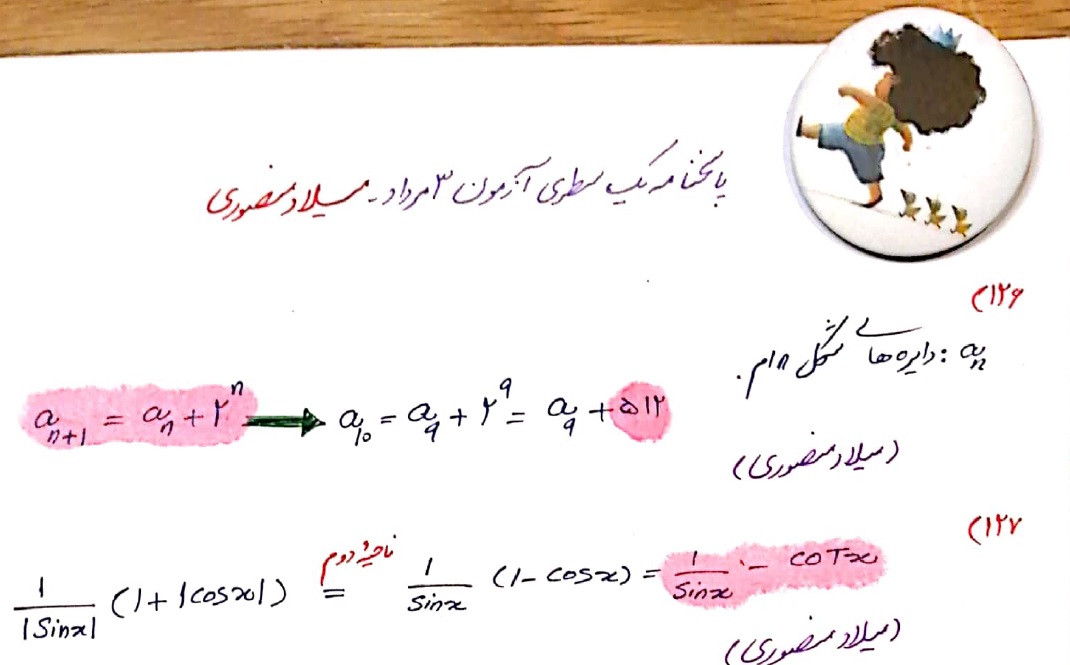 پاسخنامه یک سطری آزمون ۳ مرداد - میلاد منصوری
۱۲۶)
aₙ : دایره‌های شکل n ام.
aₙ₊₁ = aₙ + ۲ⁿ → a₁₀ = a₉ + ۲⁹ = a₉ + ۵۱۲
(میلاد منصوری)
۱۲۷)
1/|Sinx| (1 + |cosx|) = ناحیه دوم 1/Sinx (1 - cosx) = 1/Sinx - coTx
(میلاد منصوری)